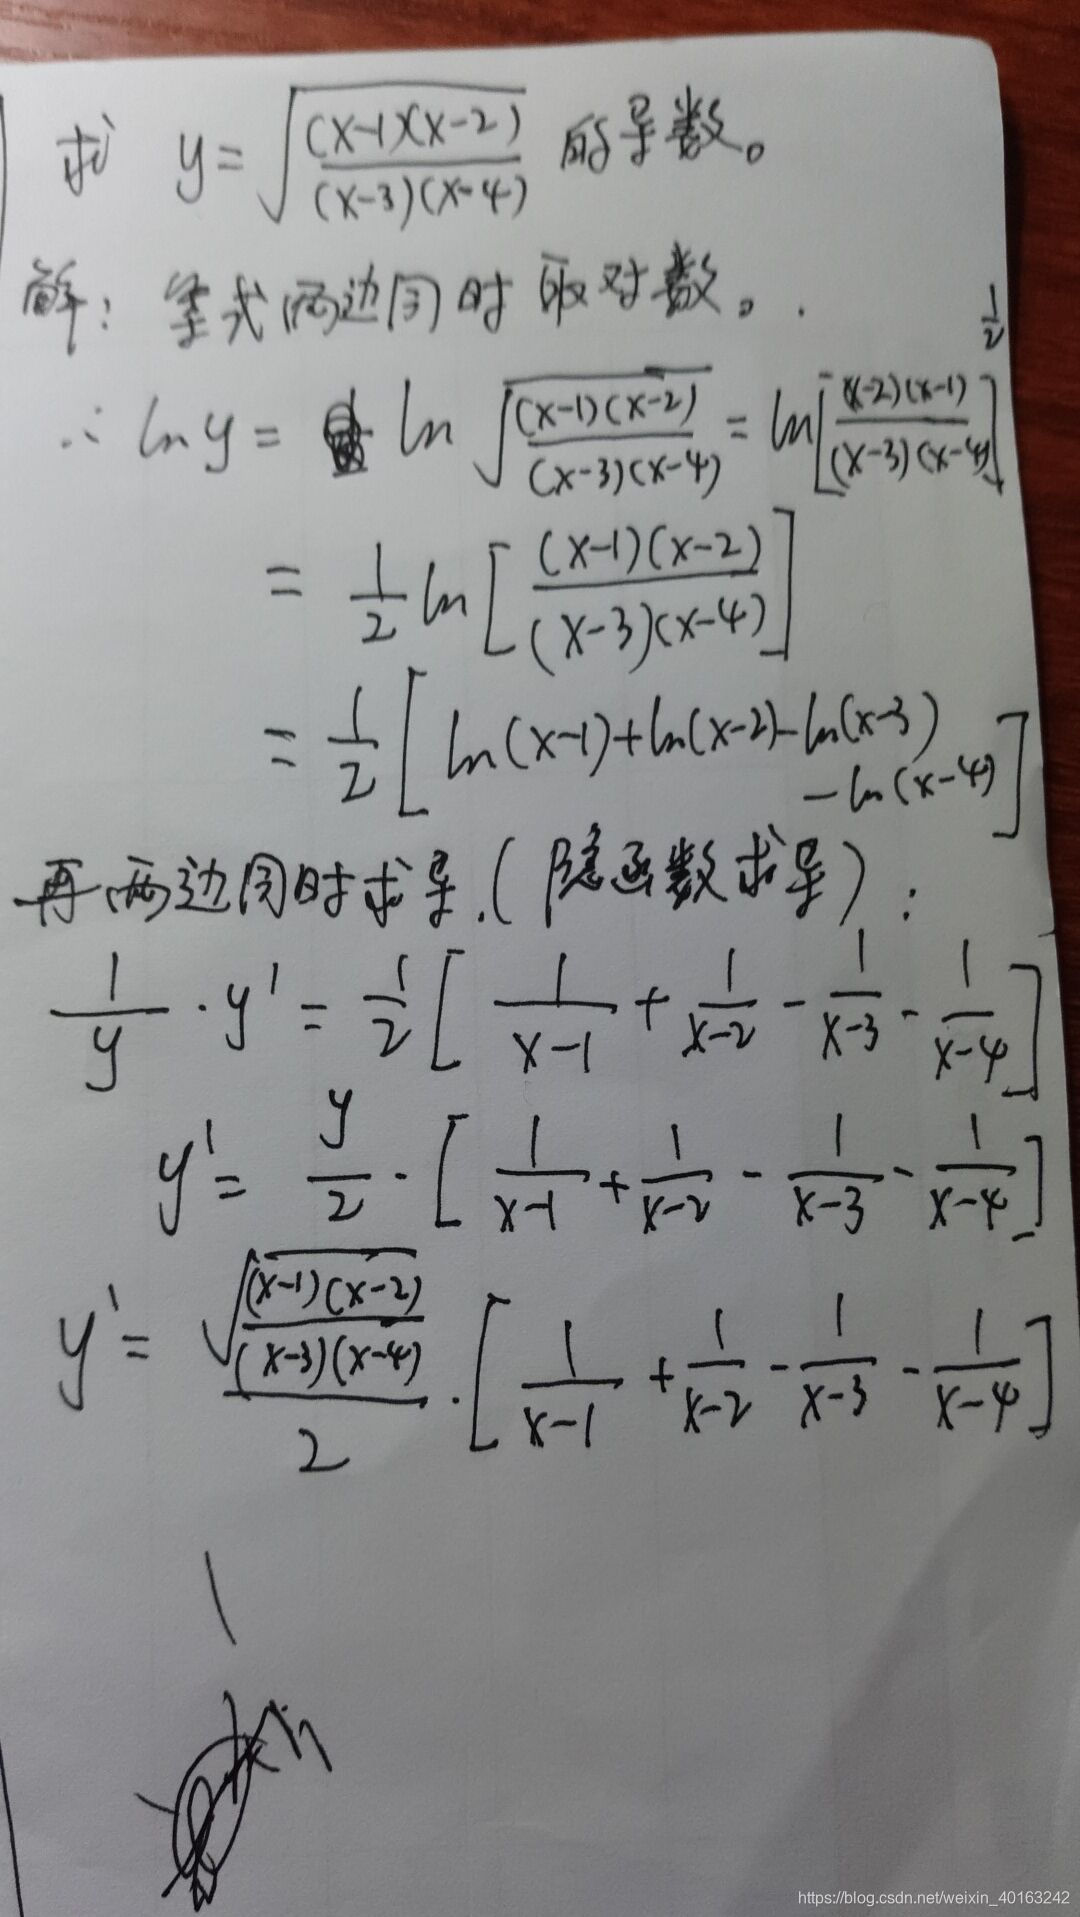 求 y=√((x-1)(x-2)/(x-3)(x-4)) 的导数。
解：等式两边同时取对数。
∴ ln y = ln √((x-1)(x-2)/(x-3)(x-4)) = ln[(x-2)(x-1)/(x-3)(x-4)]^(1/2)
= 1/2 ln[(x-1)(x-2)/(x-3)(x-4)]
= 1/2 [ln(x-1)+ln(x-2)-ln(x-3)
-ln(x-4)]
再两边同时求导.(隐函数求导)：
1/y · y' = 1/2 [1/(x-1) + 1/(x-2) - 1/(x-3) - 1/(x-4)]
y' = y/2 · [1/(x-1) + 1/(x-2) - 1/(x-3) - 1/(x-4)]
y' = √((x-1)(x-2)/(x-3)(x-4))/2 · [1/(x-1) + 1/(x-2) - 1/(x-3) - 1/(x-4)]
https://blog.csdn.net/weixin_40163242